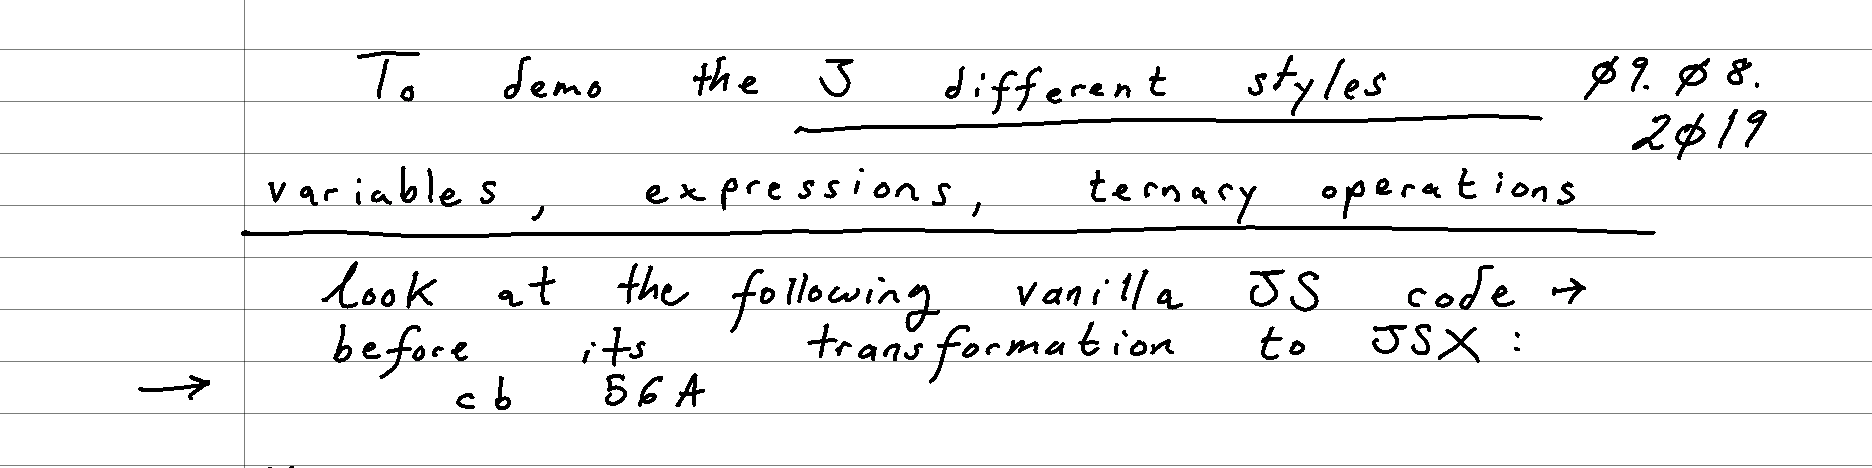 To demo the 3 different styles 09.08.
2019
variables, expressions, ternary operations
look at the following vanilla JS code →
before its transformation to JSX:
→ cb 56A